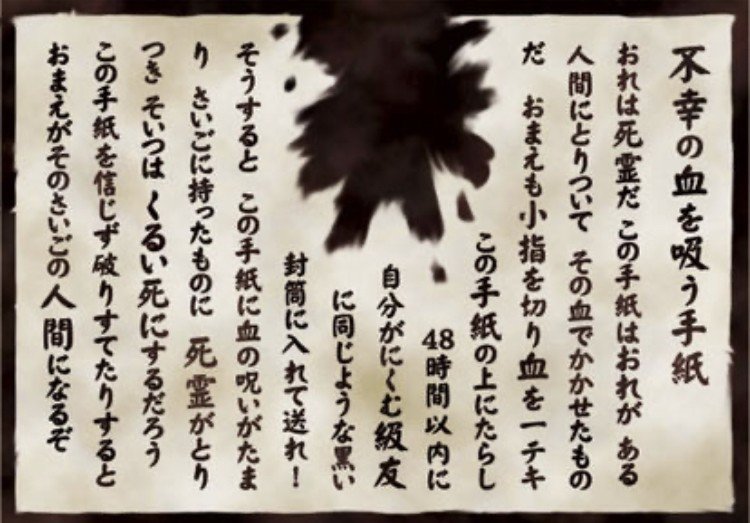 不幸の血を吸う手紙
おれは死霊だ この手紙はおれが ある
人間にとりついて その血でかかせたもの
だ おまえも小指を切り血を一テキ
この手紙の上にたらし
48時間以内に
自分がにくむ級友
に同じような黒い
封筒に入れて送れ!
そうすると この手紙に血の呪いがたま
り さいごに持ったものに 死霊がとり
つき そいつは くるい死にするだろう
この手紙を信じず破りすてたりすると
おまえがそのさいごの人間になるぞ